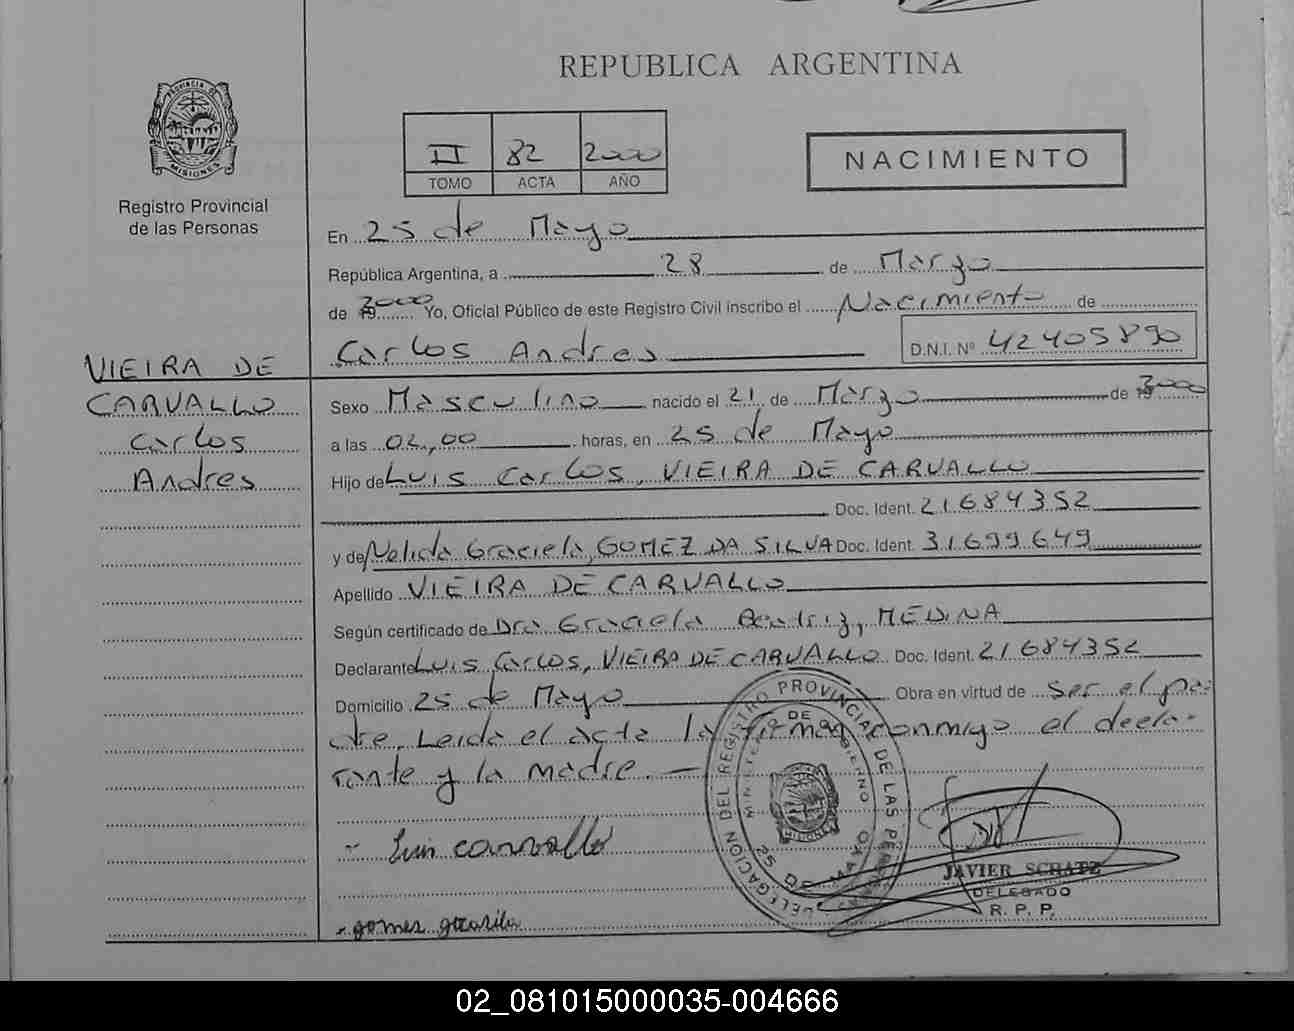 REPUBLICA ARGENTINA
PROVINCIA DE
MISIONES
Registro Provincial
de las Personas
II 82 2000
TOMO ACTA AÑO
NACIMIENTO
En 25 de Mayo
República Argentina, a 28 de Marzo
de 2000 Yo, Oficial Público de este Registro Civil inscribo el Nacimiento de
Carlos Andres D.N.I. Nº 42405890
VIEIRA DE
CARVALLO
Carlos
Andres
Sexo Masculino nacido el 21 de Marzo de 2000
a las 02,00 horas, en 25 de Mayo
Hijo de Luis Carlos, VIEIRA DE CARVALLO
Doc. Ident. 21684352
y de Nelida Graciela, GOMEZ DA SILVA Doc. Ident. 31699649
Apellido VIEIRA DE CARVALLO
Según certificado de Dra Graciela Beatriz, MEDINA
Declarante Luis Carlos, VIEIRA DE CARVALLO Doc. Ident. 21684352
Domicilio 25 de Mayo Obra en virtud de ser el pa-
dre. Leida el acta la firman conmigo el decla-
rante y la madre.
DELEGACION DEL REGISTRO PROVINCIAL DE LAS PERSONAS
MINISTERIO DE GOBIERNO
MISIONES
25 DE MAYO
Luis carvallo
JAVIER SCHATZ
DELEGADO
R. P. P.
gomes
02_081015000035-004666